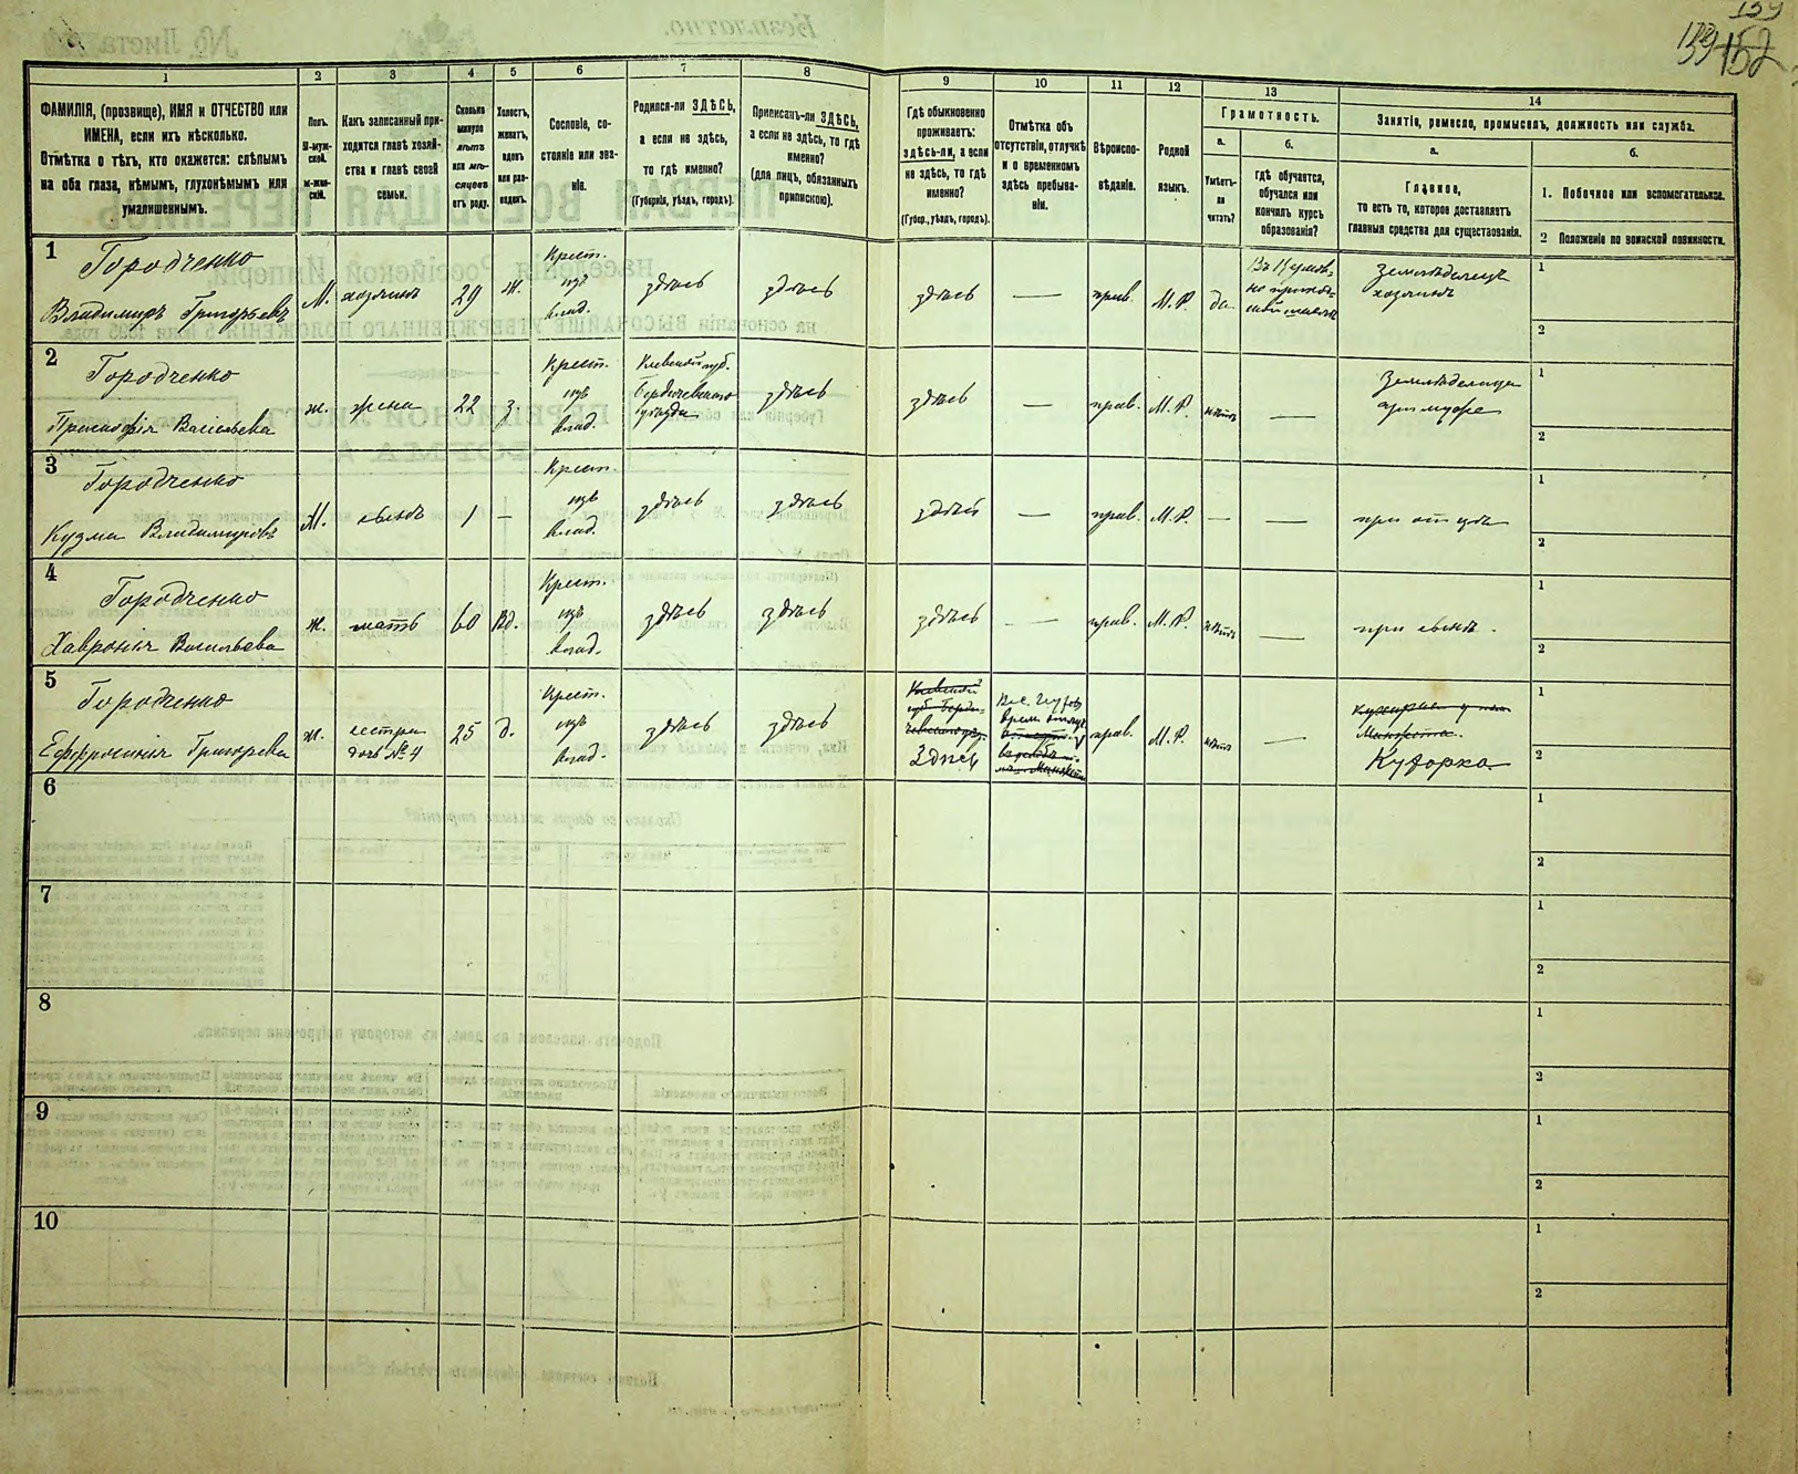 139
139 152
1
2
3
4
5
6
7
8
9
10
11
12
13
14
ФАМИЛІЯ, (прозвище), ИМЯ и ОТЧЕСТВО или
ИМЕНА, если ихъ нѣсколько.
Отмѣтка о тѣхъ, кто окажется: слѣпымъ
на оба глаза, нѣмымъ, глухонѣмымъ или
умалишеннымъ.
Полъ.
М-муж-
ской.
Ж-жен-
скій.
Какъ записанный при-
ходится главѣ хозяй-
ства и главѣ своей
семьи.
Сколько
минуло
лѣтъ
или мѣ-
сяцевъ
отъ роду.
Холостъ,
женатъ,
вдовъ
или раз-
веденъ.
Сословіе, со-
стояніе или зва-
ніе.
Родился-ли ЗДѢСЬ,
а если не здѣсь,
то гдѣ именно?
(Губернія, уѣздъ, городъ).
Приписанъ-ли ЗДѢСЬ,
а если не здѣсь, то гдѣ
именно?
(для лицъ, обязанныхъ
припискою).
Гдѣ обыкновенно
проживаетъ:
здѣсь-ли, а если
не здѣсь, то гдѣ
именно?
(Губер., уѣздъ, городъ).
Отмѣтка объ
отсутствіи, отлучкѣ
и о временномъ
здѣсь пребыва-
ніи.
Вѣроиспо-
вѣданіе.
Родной
языкъ.
Грамотность.
а.
Умѣетъ-
ли
читать?
б.
гдѣ обучается,
обучался или
кончилъ курсъ
образованія?
Занятіе, ремесло, промыселъ, должность или служба.
а.
Главное,
то есть то, которое доставляетъ
главныя средства для существованія.
б.
1. Побочное или вспомогательное.
2 Положеніе по воинской повинности.
1
Городченко
Владимиръ Григорьевъ
М.
хозяинъ
29
ж.
Крест.
изъ
влад.
здѣсь
здѣсь
здѣсь
—
прав.
М.Р.
да
школѣ
Земледѣлецъ
хозяинъ
1
2
2
Городченко
Васильева
ж.
жена
22
з.
Крест.
изъ
влад.
Кіевской губ.
Бердичевскаго
уѣзда
здѣсь
здѣсь
—
прав.
М.Р.
нѣтъ
—
Земледѣлица
при мужѣ
1
2
3
Городченко
Кузма Владимировъ
М.
сынъ
1
—
Крест.
изъ
влад.
здѣсь
здѣсь
здѣсь
—
прав.
М.Р.
—
—
при отцѣ
1
2
4
Городченко
Хавронія Васильева
ж.
мать
60
вд.
Крест.
изъ
влад.
здѣсь
здѣсь
здѣсь
—
прав.
М.Р.
нѣтъ
—
при сынѣ.
1
2
5
Городченко
Ефросинія Григорьева
ж.
сестра
дочь № 4
25
д.
Крест.
изъ
влад.
здѣсь
здѣсь
Кіевской
губ. Берди-
чевскаго уѣз.
Здѣсь
прав.
М.Р.
нѣтъ
—
Кухарка
1
2
6
1
2
7
1
2
8
1
2
9
1
2
10
1
2